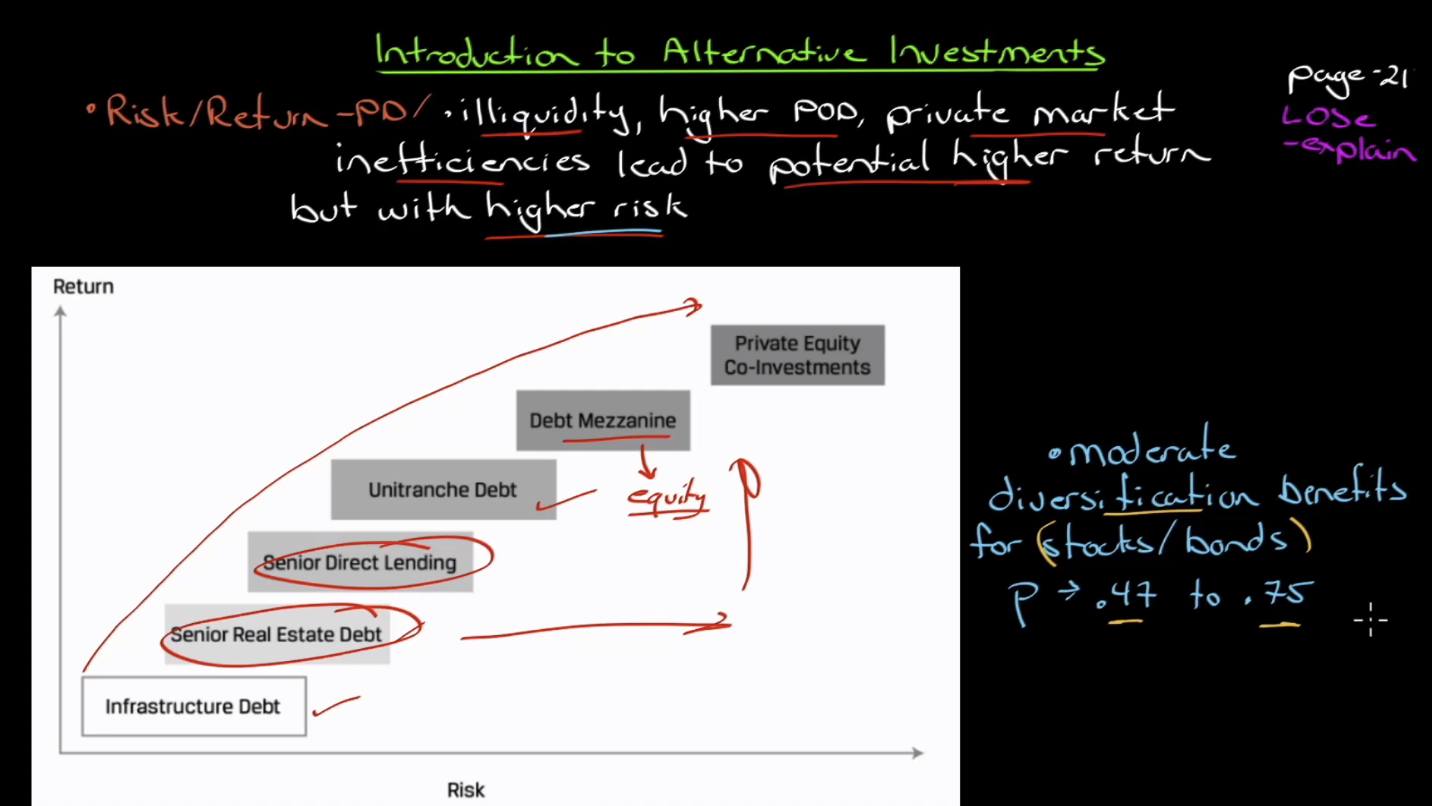 Introduction to Alternative Investments
page-21
LOSe
-explain
•Risk/Return-PD/ •illiquidity, higher POD, private market
inefficiencies lead to potential higher return
but with higher risk
Return
Private Equity
Co-Investments
Debt Mezzanine
Unitranche Debt
equity
Senior Direct Lending
Senior Real Estate Debt
Infrastructure Debt
Risk
•moderate
diversification benefits
for (stocks/bonds)
ρ → .47 to .75